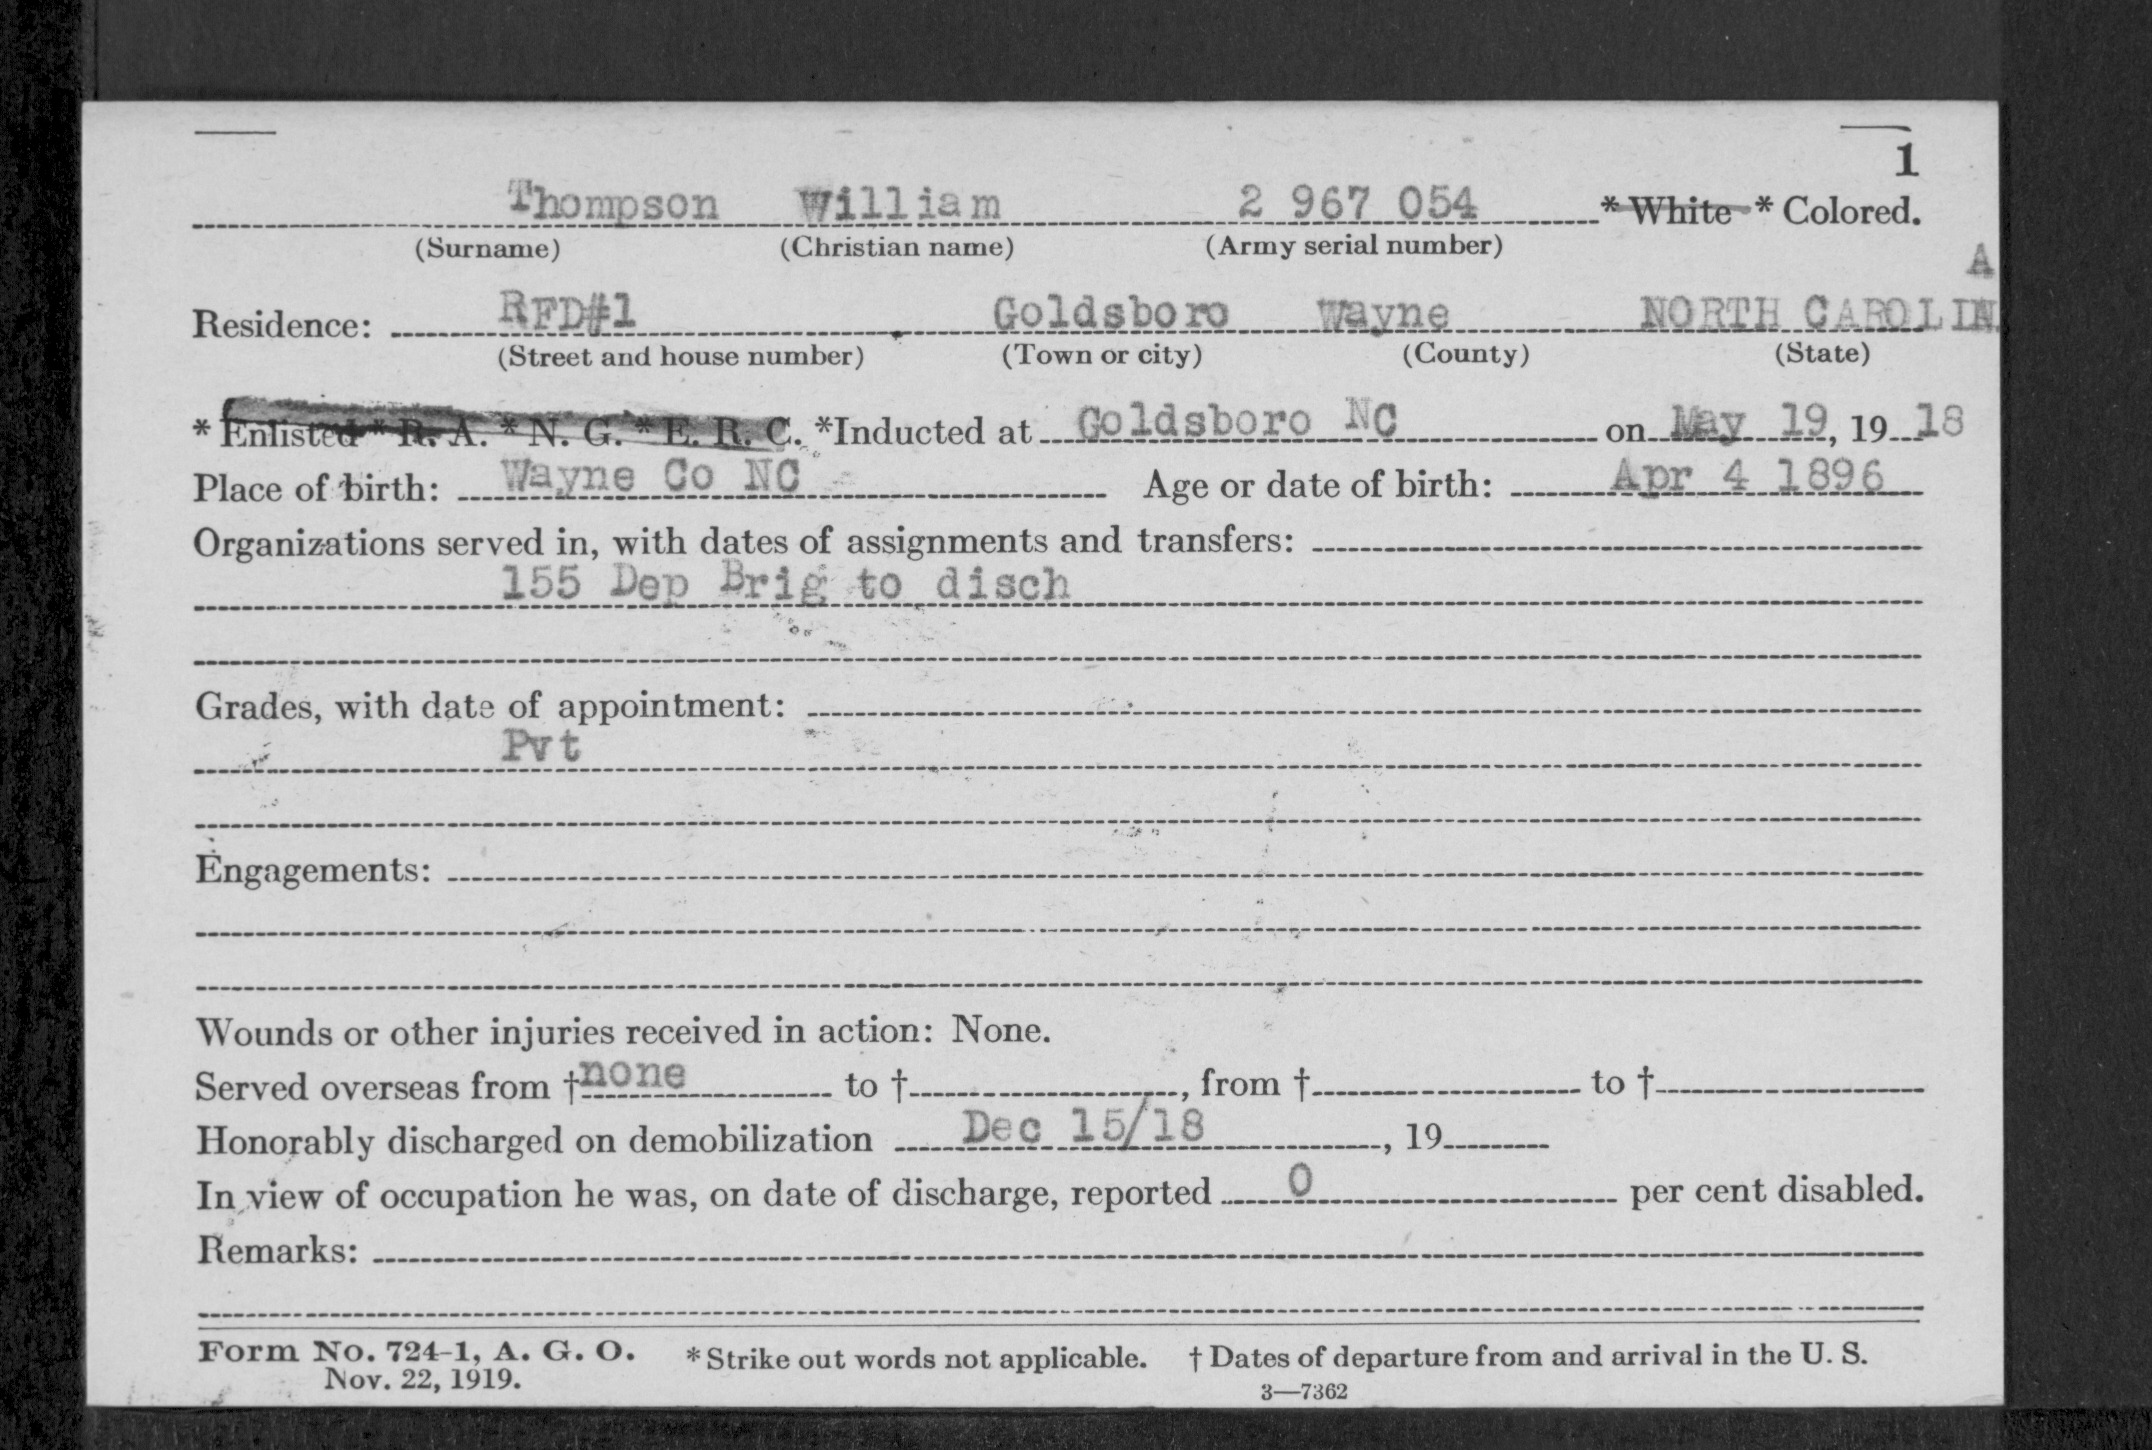 1
Thompson William 2 967 054 * White * Colored.
(Surname) (Christian name) (Army serial number)
A
Residence: RFD#1 Goldsboro Wayne NORTH CAROLIN
(Street and house number) (Town or city) (County) (State)
* Enlisted * R. A. * N. G. * E. R. C. *Inducted at Goldsboro NC on May 19, 19 18
Place of birth: Wayne Co NC Age or date of birth: Apr 4 1896
Organizations served in, with dates of assignments and transfers:
155 Dep Brig to disch
Grades, with date of appointment:
Pvt
Engagements:
Wounds or other injuries received in action: None.
Served overseas from † none to †, from † to †
Honorably discharged on demobilization Dec 15/18, 19
In view of occupation he was, on date of discharge, reported 0 per cent disabled.
Remarks:
Form No. 724-1, A. G. O. * Strike out words not applicable. † Dates of departure from and arrival in the U. S.
Nov. 22, 1919. 3—7362